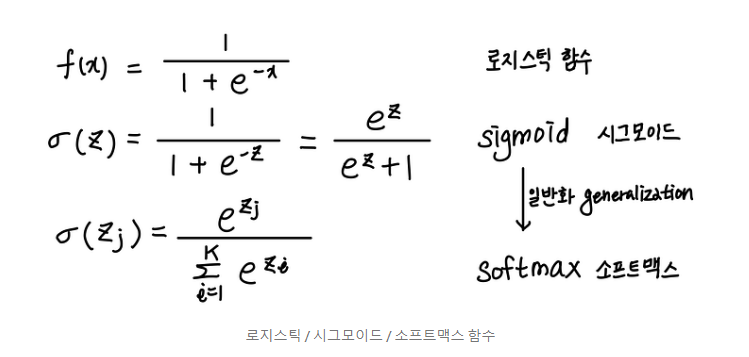 f(x) = 1 / (1 + e^-x) 로지스틱 함수
σ(z) = 1 / (1 + e^-z) = e^z / (e^z + 1) sigmoid 시그모이드
일반화 generalization
σ(zj) = e^zj / Σ i=1 K e^zi softmax 소프트맥스
로지스틱 / 시그모이드 / 소프트맥스 함수